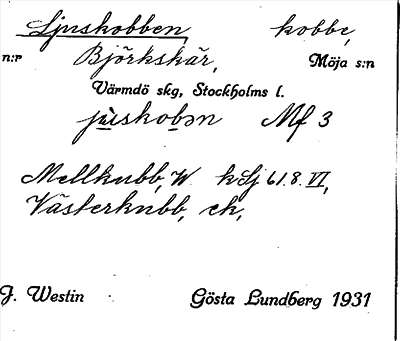 Ljuskobben kobbe,
n:r Björkskär, Möja s:n
Värmdö skg, Stockholms l.
jùskobən Mf 3
Mellkubb, W. kSj 61.8.VI,
Västerkubb, ek,
J. Westin Gösta Lundberg 1931